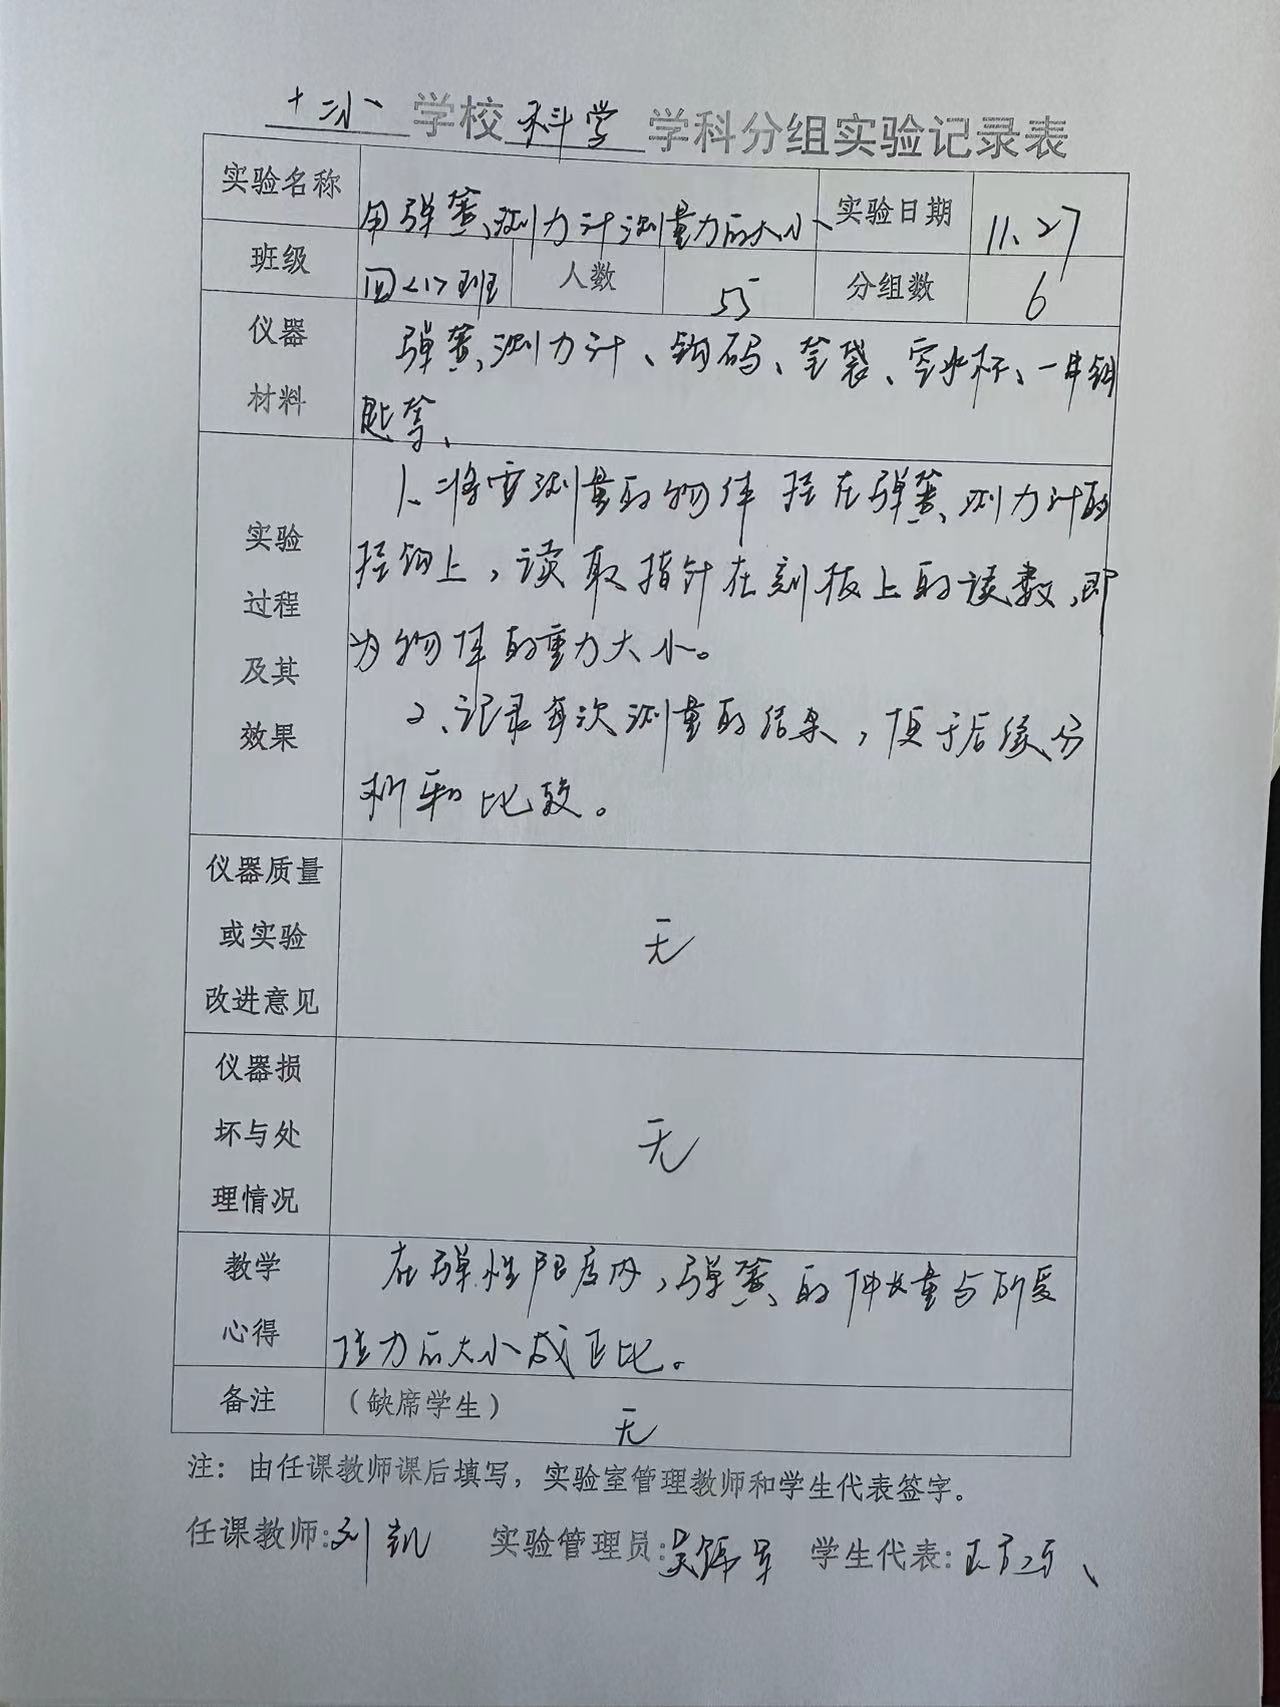 十小 学校 科学 学科分组实验记录表
实验名称 用弹簧测力计测量力的大小 实验日期 11.27
班级 四<1>班 人数 55 分组数 6
仪器 弹簧测力计、钩码、笔袋、空水杯、一串钥
材料 匙等、
1、将需测量的物体挂在弹簧测力计的
实验 挂钩上，读取指针在刻板上的读数，即
过程 为物体的重力大小。
及其 2、记录每次测量的结果，便于后续分
效果 析和比较。
仪器质量
或实验 无
改进意见
仪器损
坏与处 无
理情况
教学 在弹性限度内，弹簧的伸长量与所受
心得 拉力的大小成正比。
备注 （缺席学生） 无
注：由任课教师课后填写，实验室管理教师和学生代表签字。
任课教师:刘凯 实验管理员:吴 军 学生代表:王